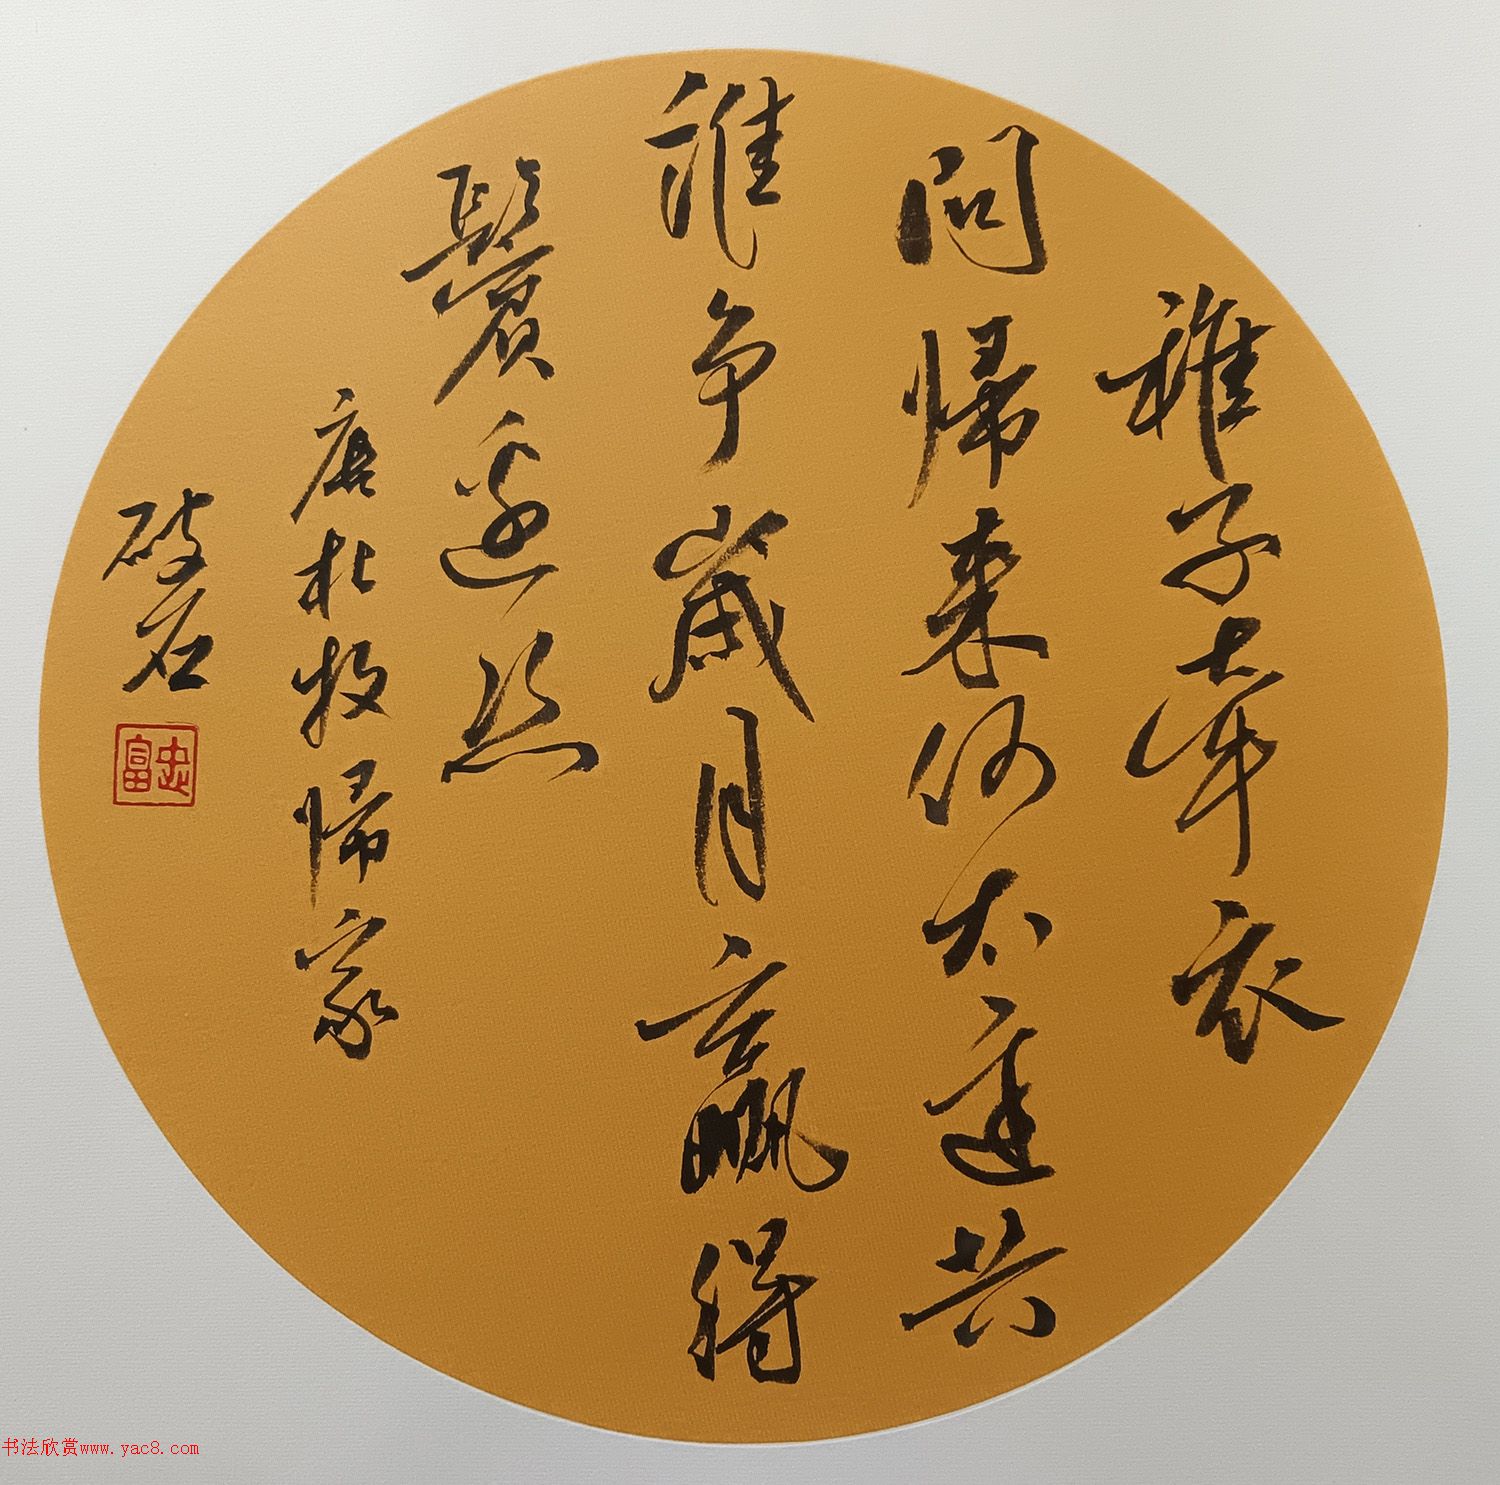 稚子牽衣
問歸来何太遲共
誰争歲月贏得
鬢邊丝
唐杜牧歸家
破石
忠富
书法欣赏www.yac8.com